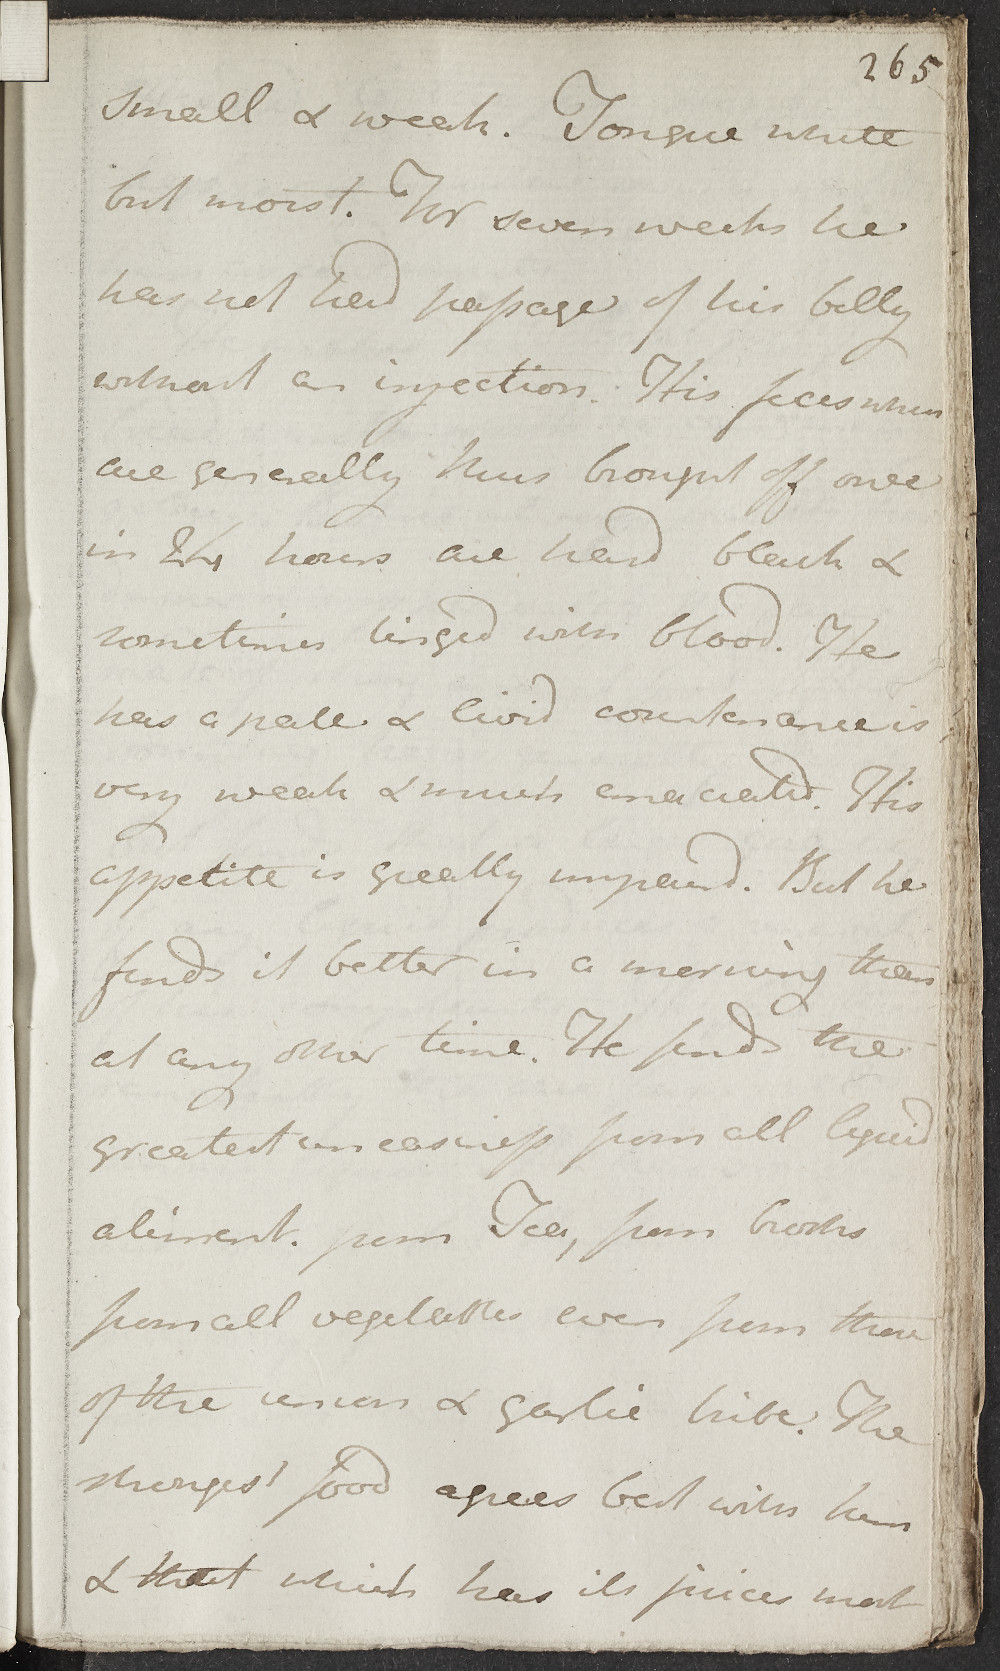 265
small & weak. Tongue white
but moist. For seven weeks he
has not had passage of his belly
without an injection. His feces when
are generally thus brought off once
in 24 hours are hard black &
sometimes tinged with blood. He
has a pale & livid countenance is
very weak & much emaciated. His
appetite is greatly impaired. But he
finds it better in a morning than
at any other time. He finds the
greatest uneasiness from all liquid
aliment. from Tea, from broths
from all vegetables even from those
of the onion & garlic tribe. The
strongest food agrees best with him
& that which has its juices most